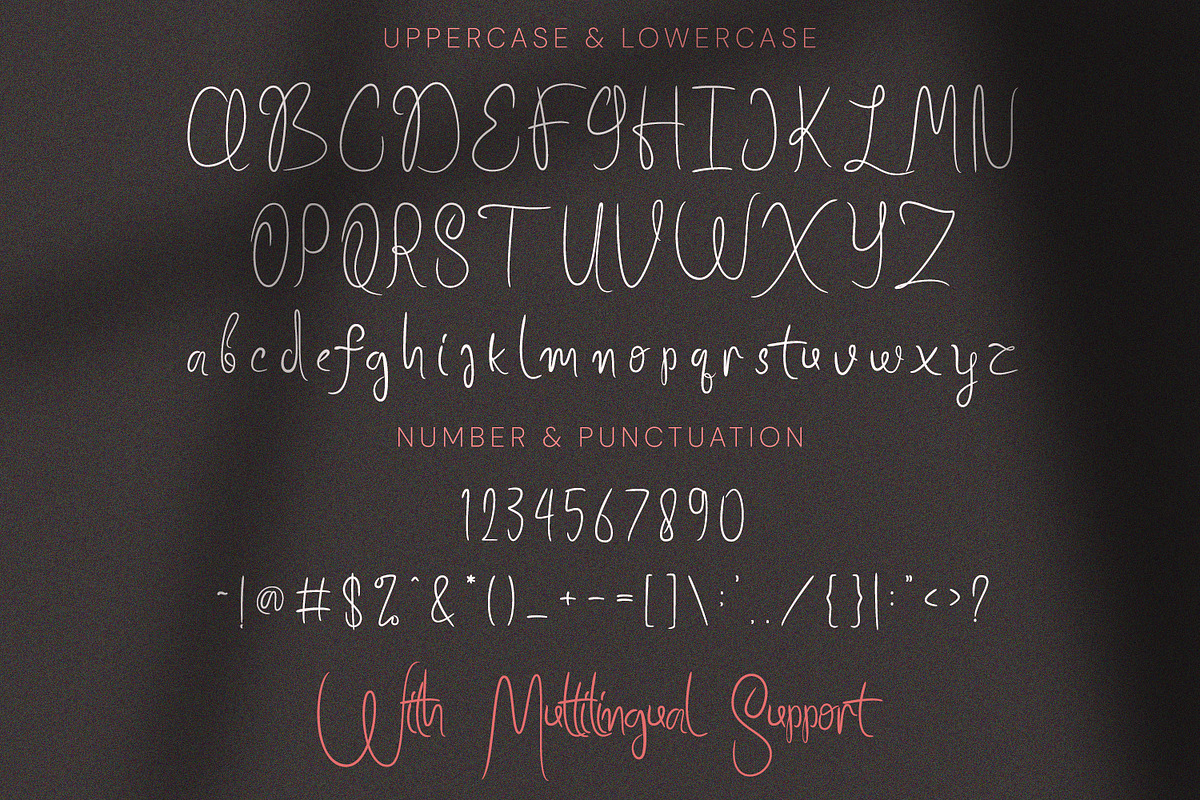 UPPERCASE & LOWERCASE
ABCDEFGHIJKLMN
OPQRSTUVWXYZ
abcdefghijklmnopqrstuvwxyz
NUMBER & PUNCTUATION
1234567890
~!@#$%^&*()_+-=[]\;',./{}|:"<>?
With Multilingual Support